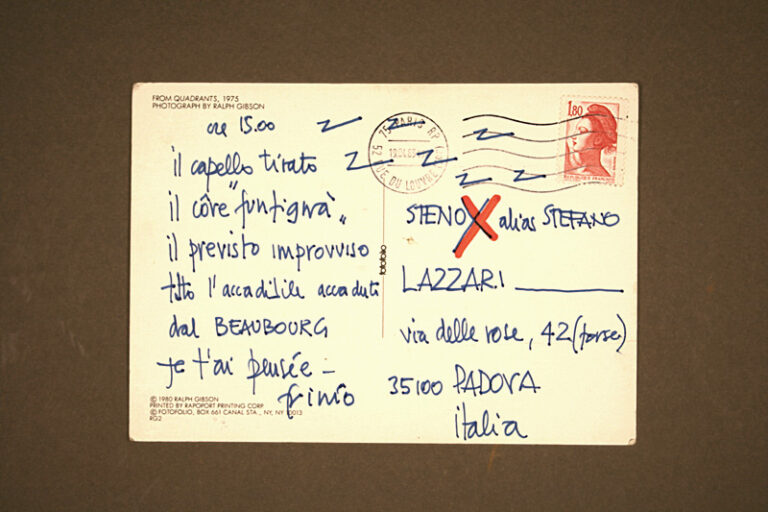 FROM QUADRANTS, 1975
PHOTOGRAPH BY RALPH GIBSON
ore 15.00
il capello tirato
il côre "funtignà"
il previsto improvviso
tutto l'accadibile accaduto
dal BEAUBOURG
je t'ai pensée –
frinio
© 1980 RALPH GIBSON
PRINTED BY RAPOPORT PRINTING CORP
© FOTOFOLIO, BOX 661 CANAL STA., NY, NY 10013
RG2
fotofolio
75 PARIS RP
52 RUE DU LOUVRE
1,80
REPUBLIQUE FRANCAISE
STENO X alias STEFANO
LAZZARI
via delle rose, 42 (forse)
35100 PADOVA
italia